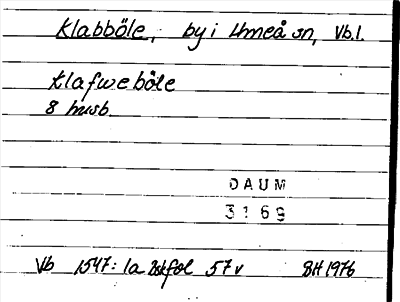 Klabböle, by i Umeå sn, Vb.l.
Klafweböle
8 husb.
DAUM
3169
Vb 1547: 1a fol 57 v BH 1976